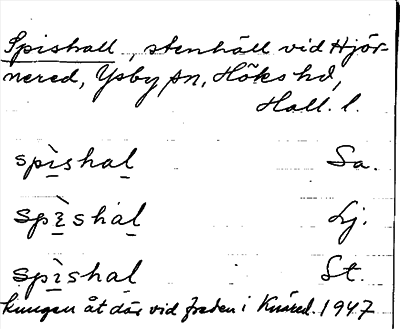 Spishall, stenhäll vid Hjör-
nered, Ysby sn, Höks hd,
Hall. l.
spìshal Sa.
spìshal Lj.
spìshal St.
kungen åt där vid freden i Knäred. 1947